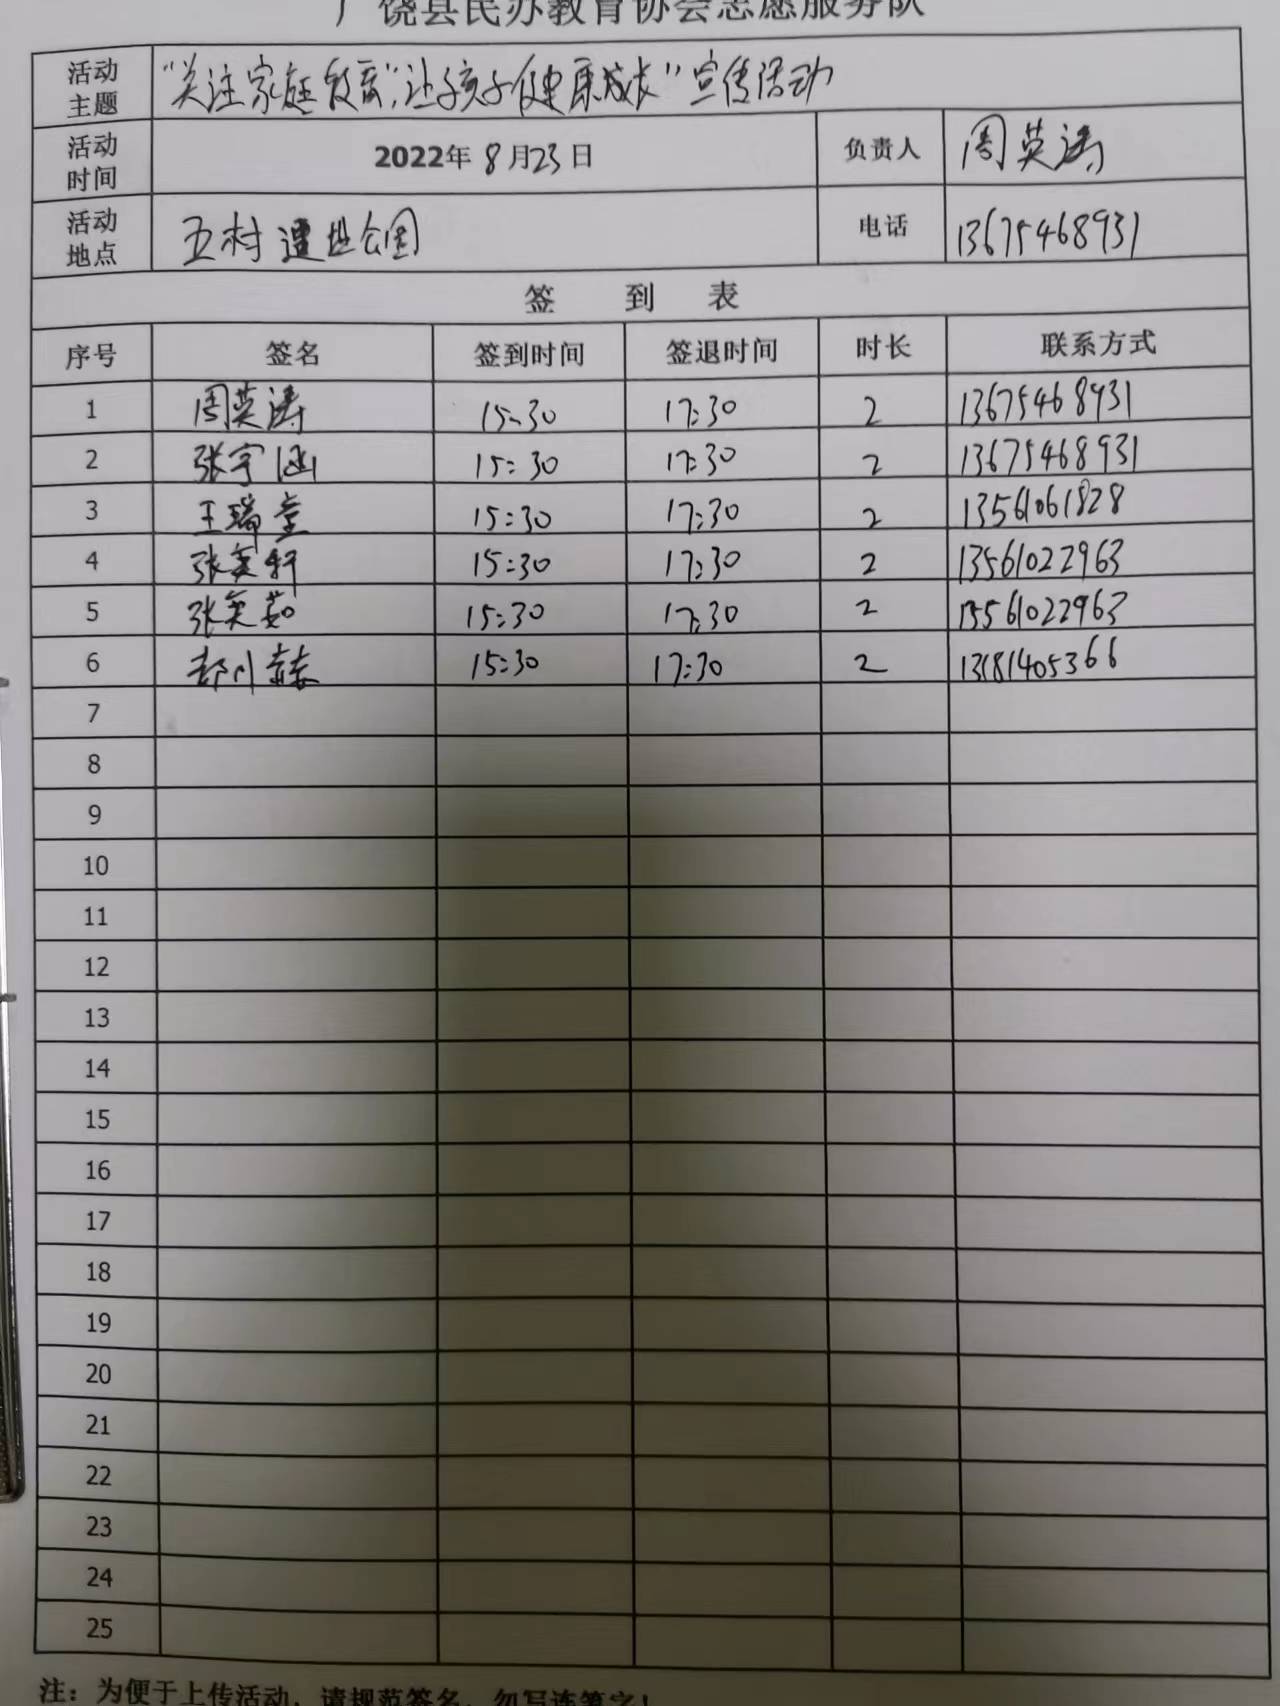 广饶县民办教育协会志愿服务队
活动主题 "关注家庭教育",让孩子健康成长"宣传活动
活动时间 2022年8月23日 负责人 周英涛
活动地点 五村遗址公园 电话 13675468931
签 到 表
序号 签名 签到时间 签退时间 时长 联系方式
1 周英涛 15:30 17:30 2 13675468931
2 张宇涵 15:30 17:30 2 13675468931
3 王瑞萱 15:30 17:30 2 13561061828
4 张奕轩 15:30 17:30 2 13561022963
5 张奕茹 15:30 17:30 2 13561022963
6 15:30 17:30 2 13181405366
7
8
9
10
11
12
13
14
15
16
17
18
19
20
21
22
23
24
25
注:为便于上传活动,请规范签名,勿写连笔字!